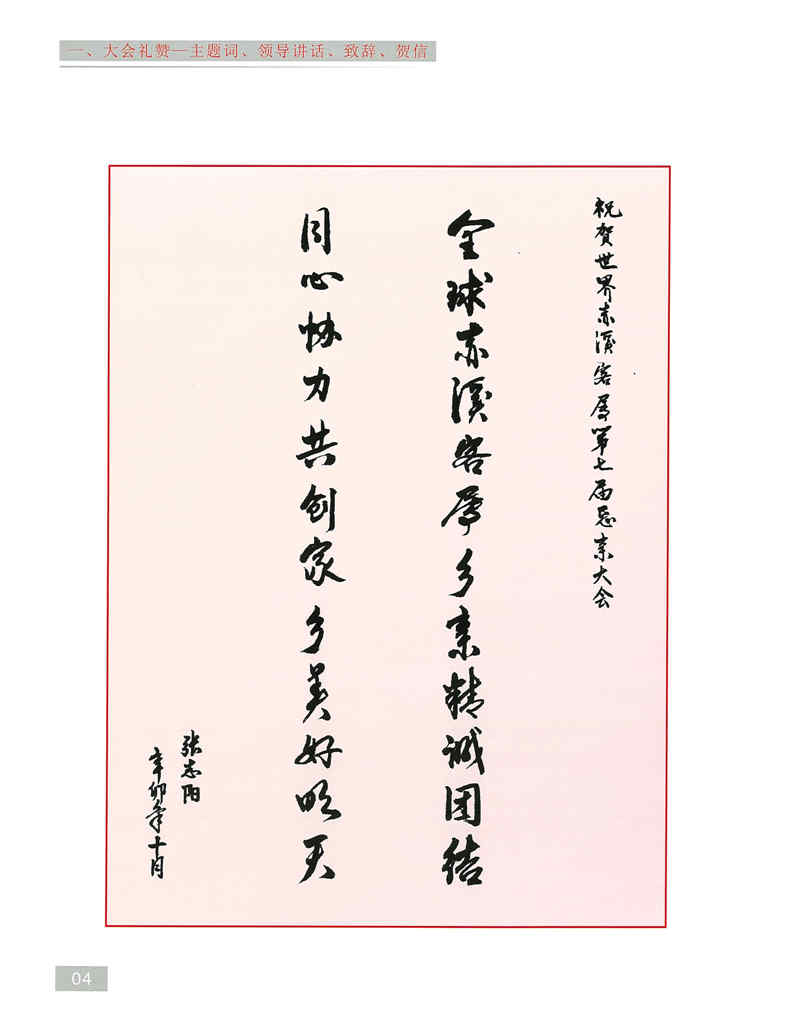 一、大会礼赞—主题词、领导讲话、致辞、贺信
祝贺世界赤溪客属第七届恳亲大会
全球赤溪客属乡亲精诚团结
同心协力共创家乡美好明天
张志阳
辛卯年十月
04